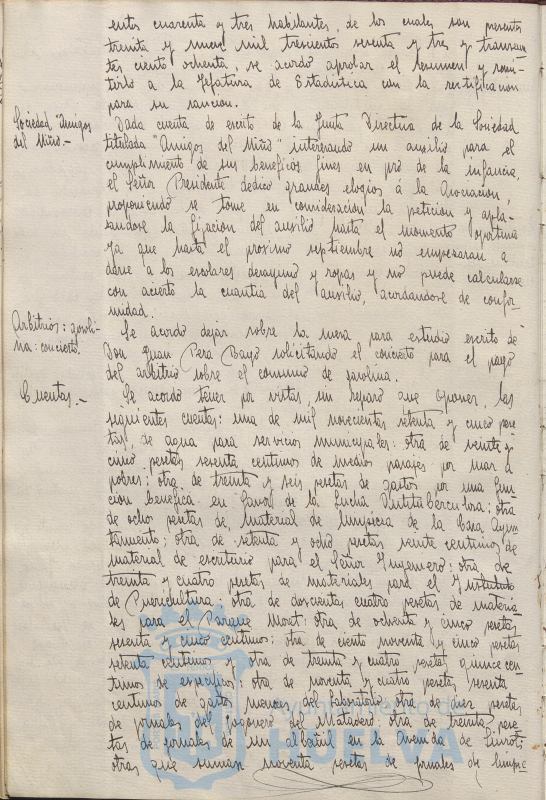 entos cuarenta y tres habitantes, de los cuales son presentes
treinta y nueve mil trescientos sesenta y tres y transeun-
tes ciento ochenta, se acordo aprobar el resumen y remi-
tirlo a la Jefatura de Estadistica con la rectificacion
para su sancion.
Sociedad "Amigos
del Niño.-
Dada cuenta de escrito de la Junta Directiva de la Sociedad
titulada "Amigos del Niño" interesando un auxilio para el
cumplimiento de sus beneficos fines en pro de la infancia,
el Señor Presidente dedico grandes elogios á la Asociacion,
proponiendo se tome en consideracion la peticion y apla-
zandose la fijacion del auxilio hasta el momento oportuno
ya que hasta el proximo septiembre no empezaran a
darse a los escolares desayuno y ropas y no puede calcularse
con acierto la cuantia del auxilio, acordandose de confor-
midad.
Arbitrios: gasoli-
na: concierto.
Se acordo dejar sobre la mesa para estudio escrito de
Don Juan Pera Bayo solicitando el concierto para el pago
del arbitrio sobre el consumo de gasolina.
Cuentas.-
Se acordo tener por vistas, sin reparo que oponer, las
siguientes cuentas: una de mil novecientas setenta y cinco pese
tas, de agua para servicios municipales: otra de veinte y
cinco pesetas sesenta centimos de medios pasajes por mar á
pobres; otra de treinta y seis pesetas de gastos por una fun
cion benefica en favor de la Lucha Antituberculosa; otra
de ocho pesetas de material de limpieza de la Casa Ayun
tamiento; otra de setenta y ocho pesetas veinte centimos de
material de escritorio para el Señor Ingeniero; otra de
treinta y cuatro pesetas de materiales para el Instituto
de Puericultura; otra de doscientas cuatro pesetas de materia-
les para el Parque Moret: otra de ochenta y cinco pesetas
sesenta y cinco centimos: otra de ciento noventa y cinco pesetas
setenta centimos y otra de treinta y cuatro pesetas quince cen-
timos de especificos; otra de noventa y cuatro pesetas sesenta
centimos de gastos menores del Laboratorio otra de diez pesetas
de jornales del fogonero del Matadero: otra de treinta pese
tas de jornales de un albañil en la Avenida de
otras que suman noventa pesetas de jornales de limpie
Ayuntamiento de
HUELVA